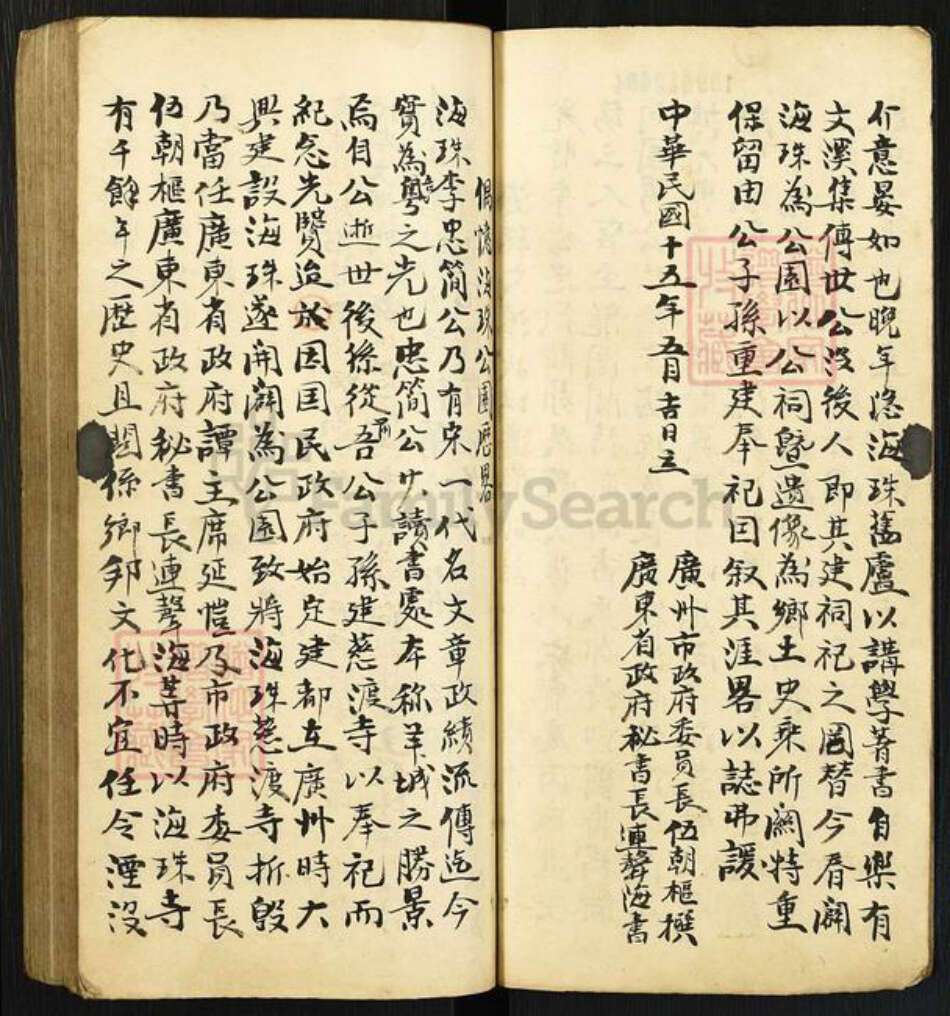 介意晏如也晚年隐海珠舊廬以講學著書自樂有
文溪集傳世公沒後人即其建祠祀之罔替今春闢
海珠為公園以公祠暨遺像為鄉土史乘所關特重
保留由公子孫重建奉祀因叙其涯畧以誌弗諼
中華民國十五年五月吉日立
廣州市政府委員長伍朝樞撰
廣東省政府秘書長連聲海書
海珠公園歷畧
海珠李忠簡公乃有宋一代名文章政績流傳迄今
實為粵之先也忠簡公少讀書處本称羊城之勝景
焉自公逝世後孫從吾公子孫建慈渡寺以奉祀而
紀念先賢迨於因国民政府始定建都在廣州時大
興建設海珠遂開闢為公園致將海珠慈渡寺拆毀
乃當任廣東省政府譚主席延愷及市政府委員長
伍朝樞廣東省政府秘書長連聲海等時以海珠寺
有千餘年之歷史且関係鄉邦文化不宜任令湮沒
FamilySearch